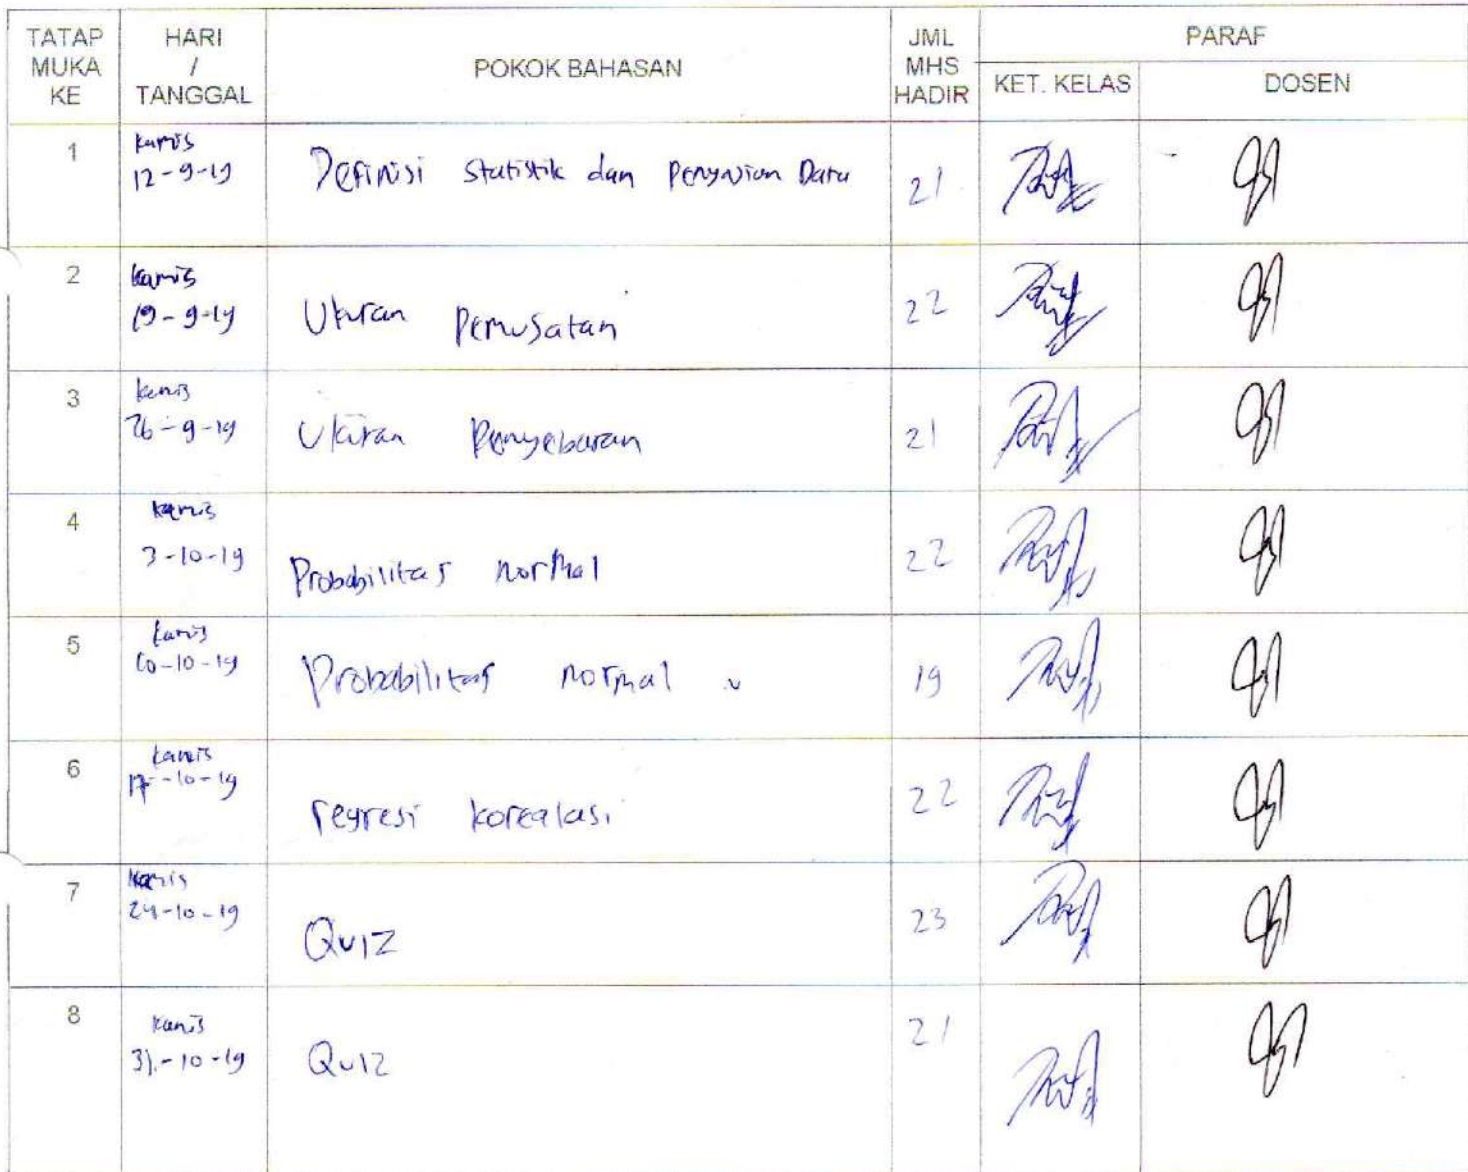 TATAP MUKA KE | HARI / TANGGAL | POKOK BAHASAN | JML MHS HADIR | PARAF
KET. KELAS | DOSEN
1 | kamis 12-9-19 | Definisi statistik dan Penyajian Data | 21
2 | kamis 19-9-19 | Ukuran Pemusatan | 22
3 | kamis 26-9-19 | Ukuran Penyebaran | 21
4 | kamis 3-10-19 | Probabilitas normal | 22
5 | kamis 10-10-19 | Probabilitas normal | 19
6 | kamis 17-10-19 | regresi korealasi | 22
7 | kamis 24-10-19 | Quiz | 23
8 | kamis 31-10-19 | Quiz | 21